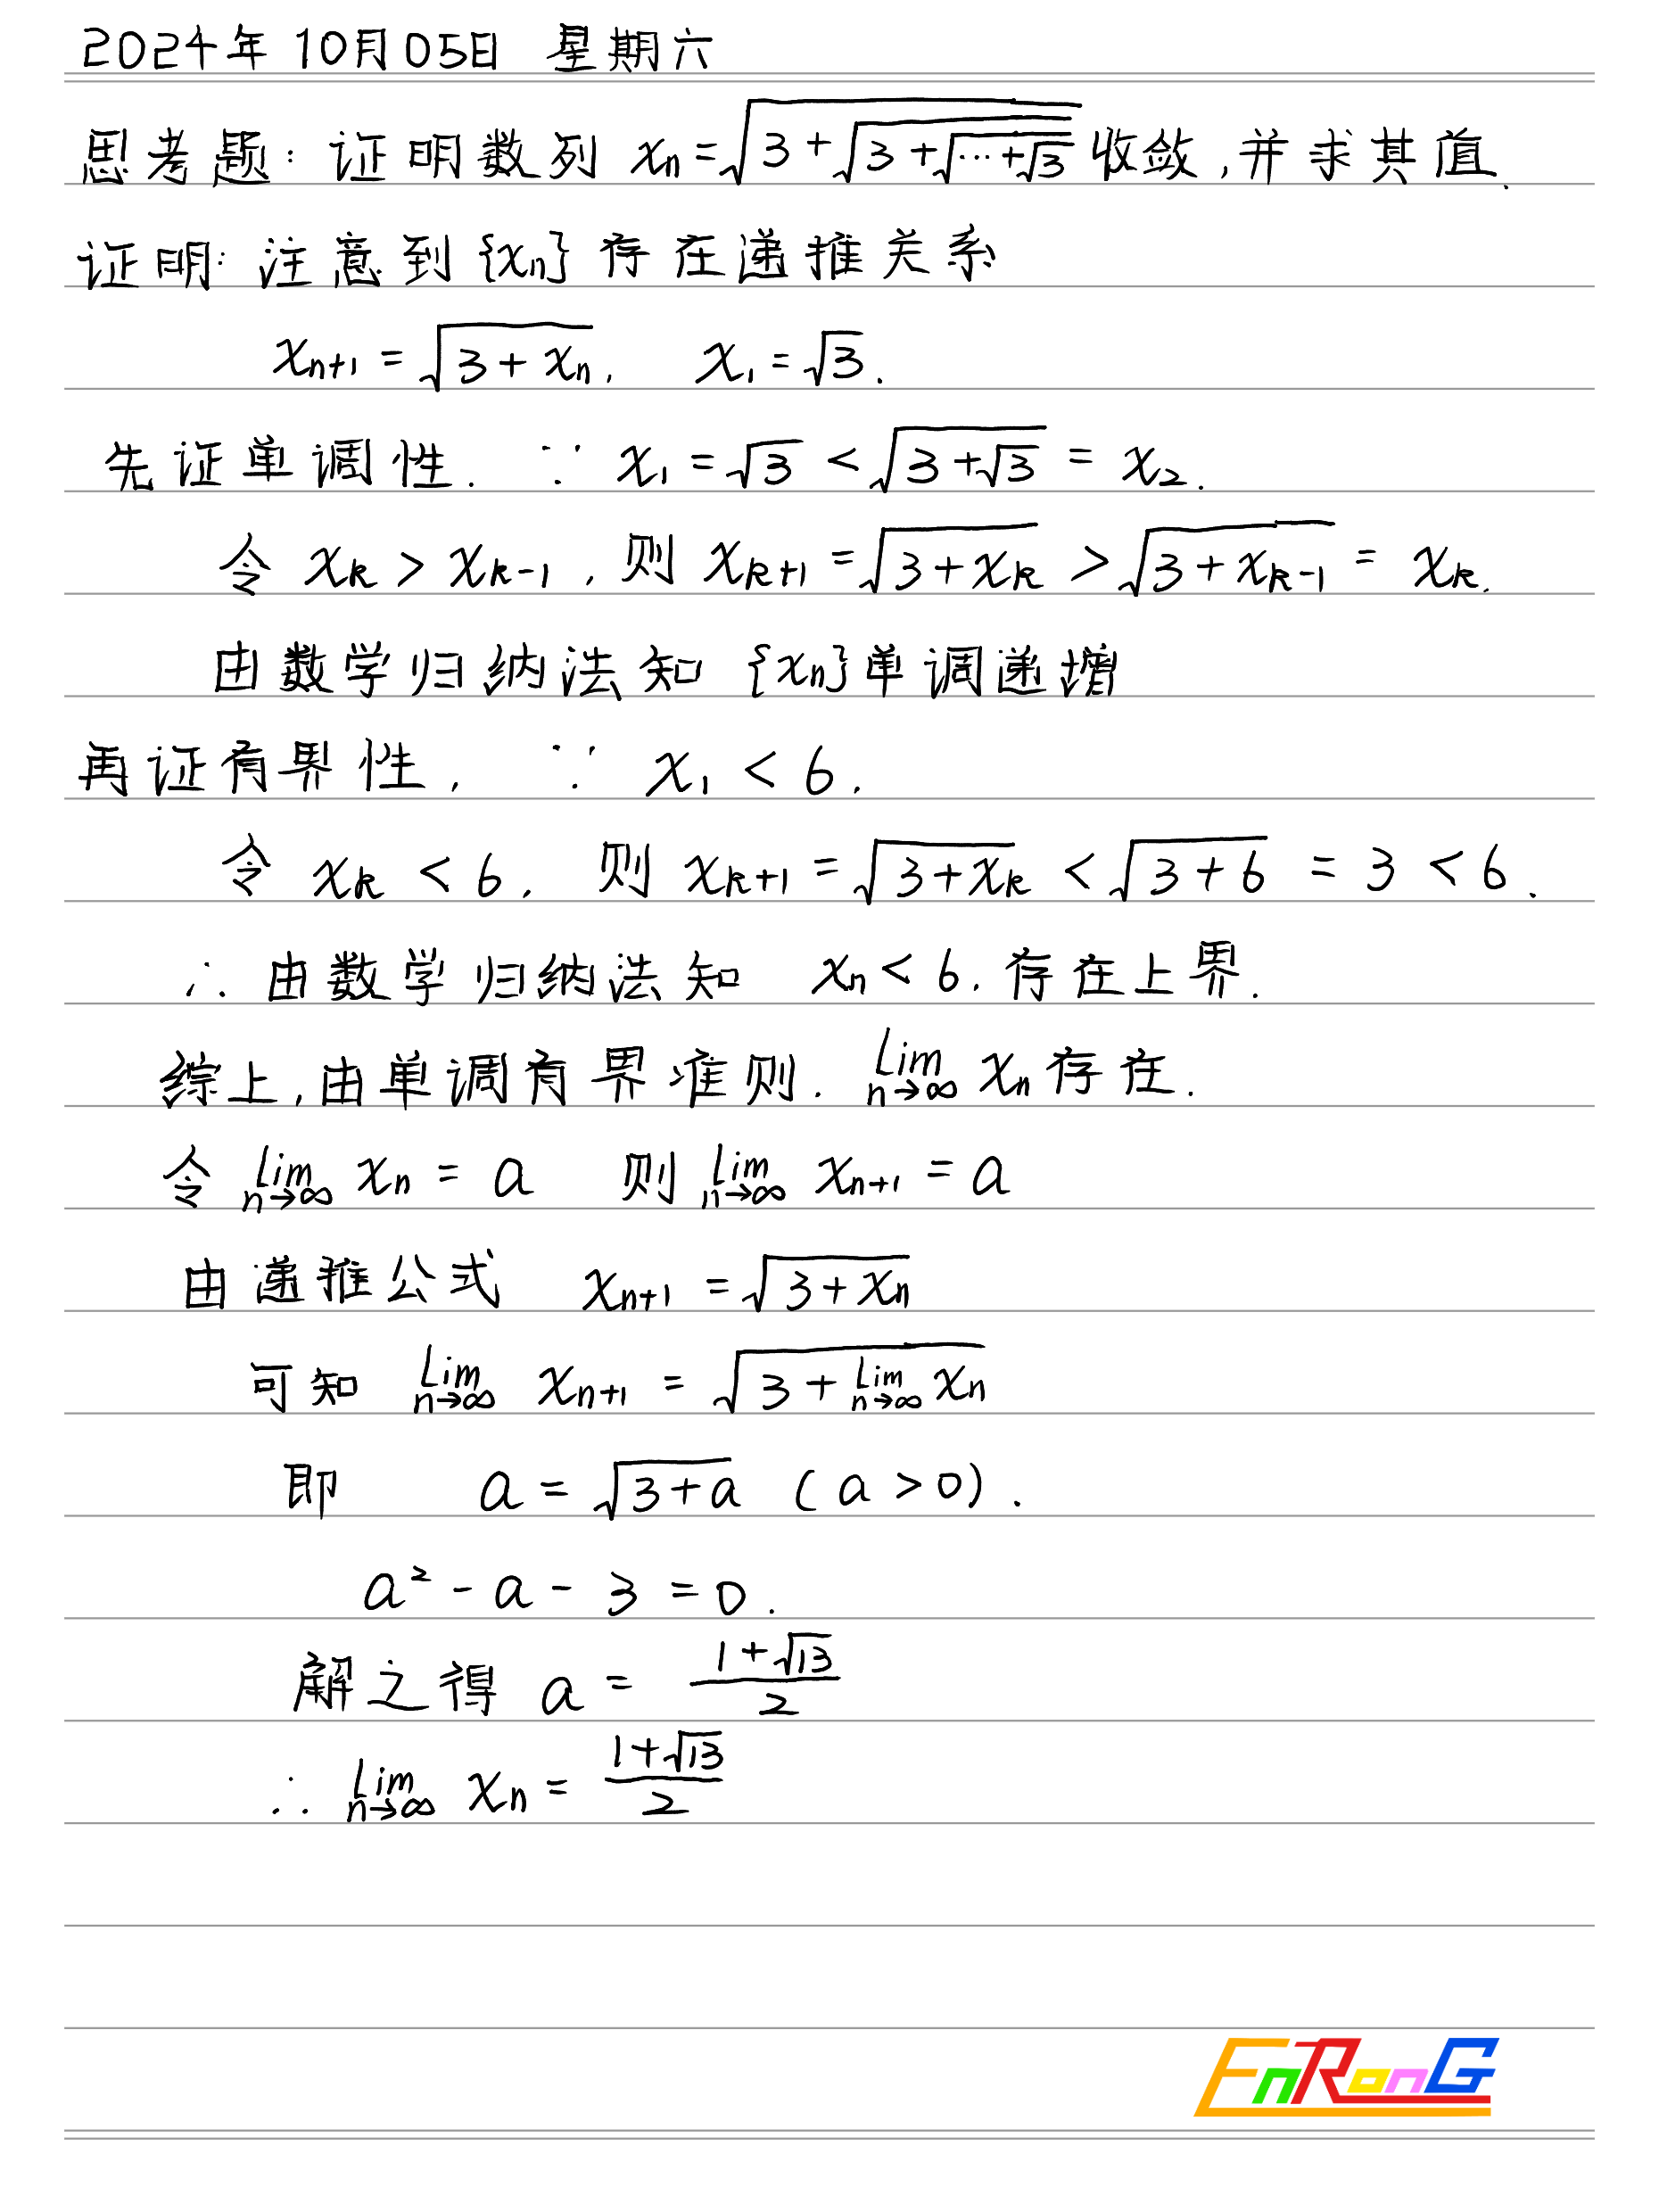 2024年10月05日 星期六
思考题：证明数列 xₙ=√(3+√(3+√(⋯+√3))) 收敛,并求其值.
证明: 注意到{xₙ}存在递推关系
xₙ₊₁=√(3+xₙ), x₁=√3.
先证单调性. ∵ x₁=√3<√(3+√3)=x₂.
令 xₖ>xₖ₋₁, 则 xₖ₊₁=√(3+xₖ)>√(3+xₖ₋₁)=xₖ.
由数学归纳法知 {xₙ}单调递增
再证有界性, ∵ x₁<6.
令 xₖ<6, 则 xₖ₊₁=√(3+xₖ)<√(3+6)=3<6.
∴由数学归纳法知 xₙ<6.存在上界.
综上,由单调有界准则. lim n→∞ xₙ存在.
令 lim n→∞ xₙ=a 则 lim n→∞ xₙ₊₁=a
由递推公式 xₙ₊₁=√(3+xₙ)
可知 lim n→∞ xₙ₊₁=√(3+lim n→∞ xₙ)
即 a=√(3+a) (a>0).
a²-a-3=0.
解之得 a=(1+√13)/2
∴ lim n→∞ xₙ=(1+√13)/2
EnRonG